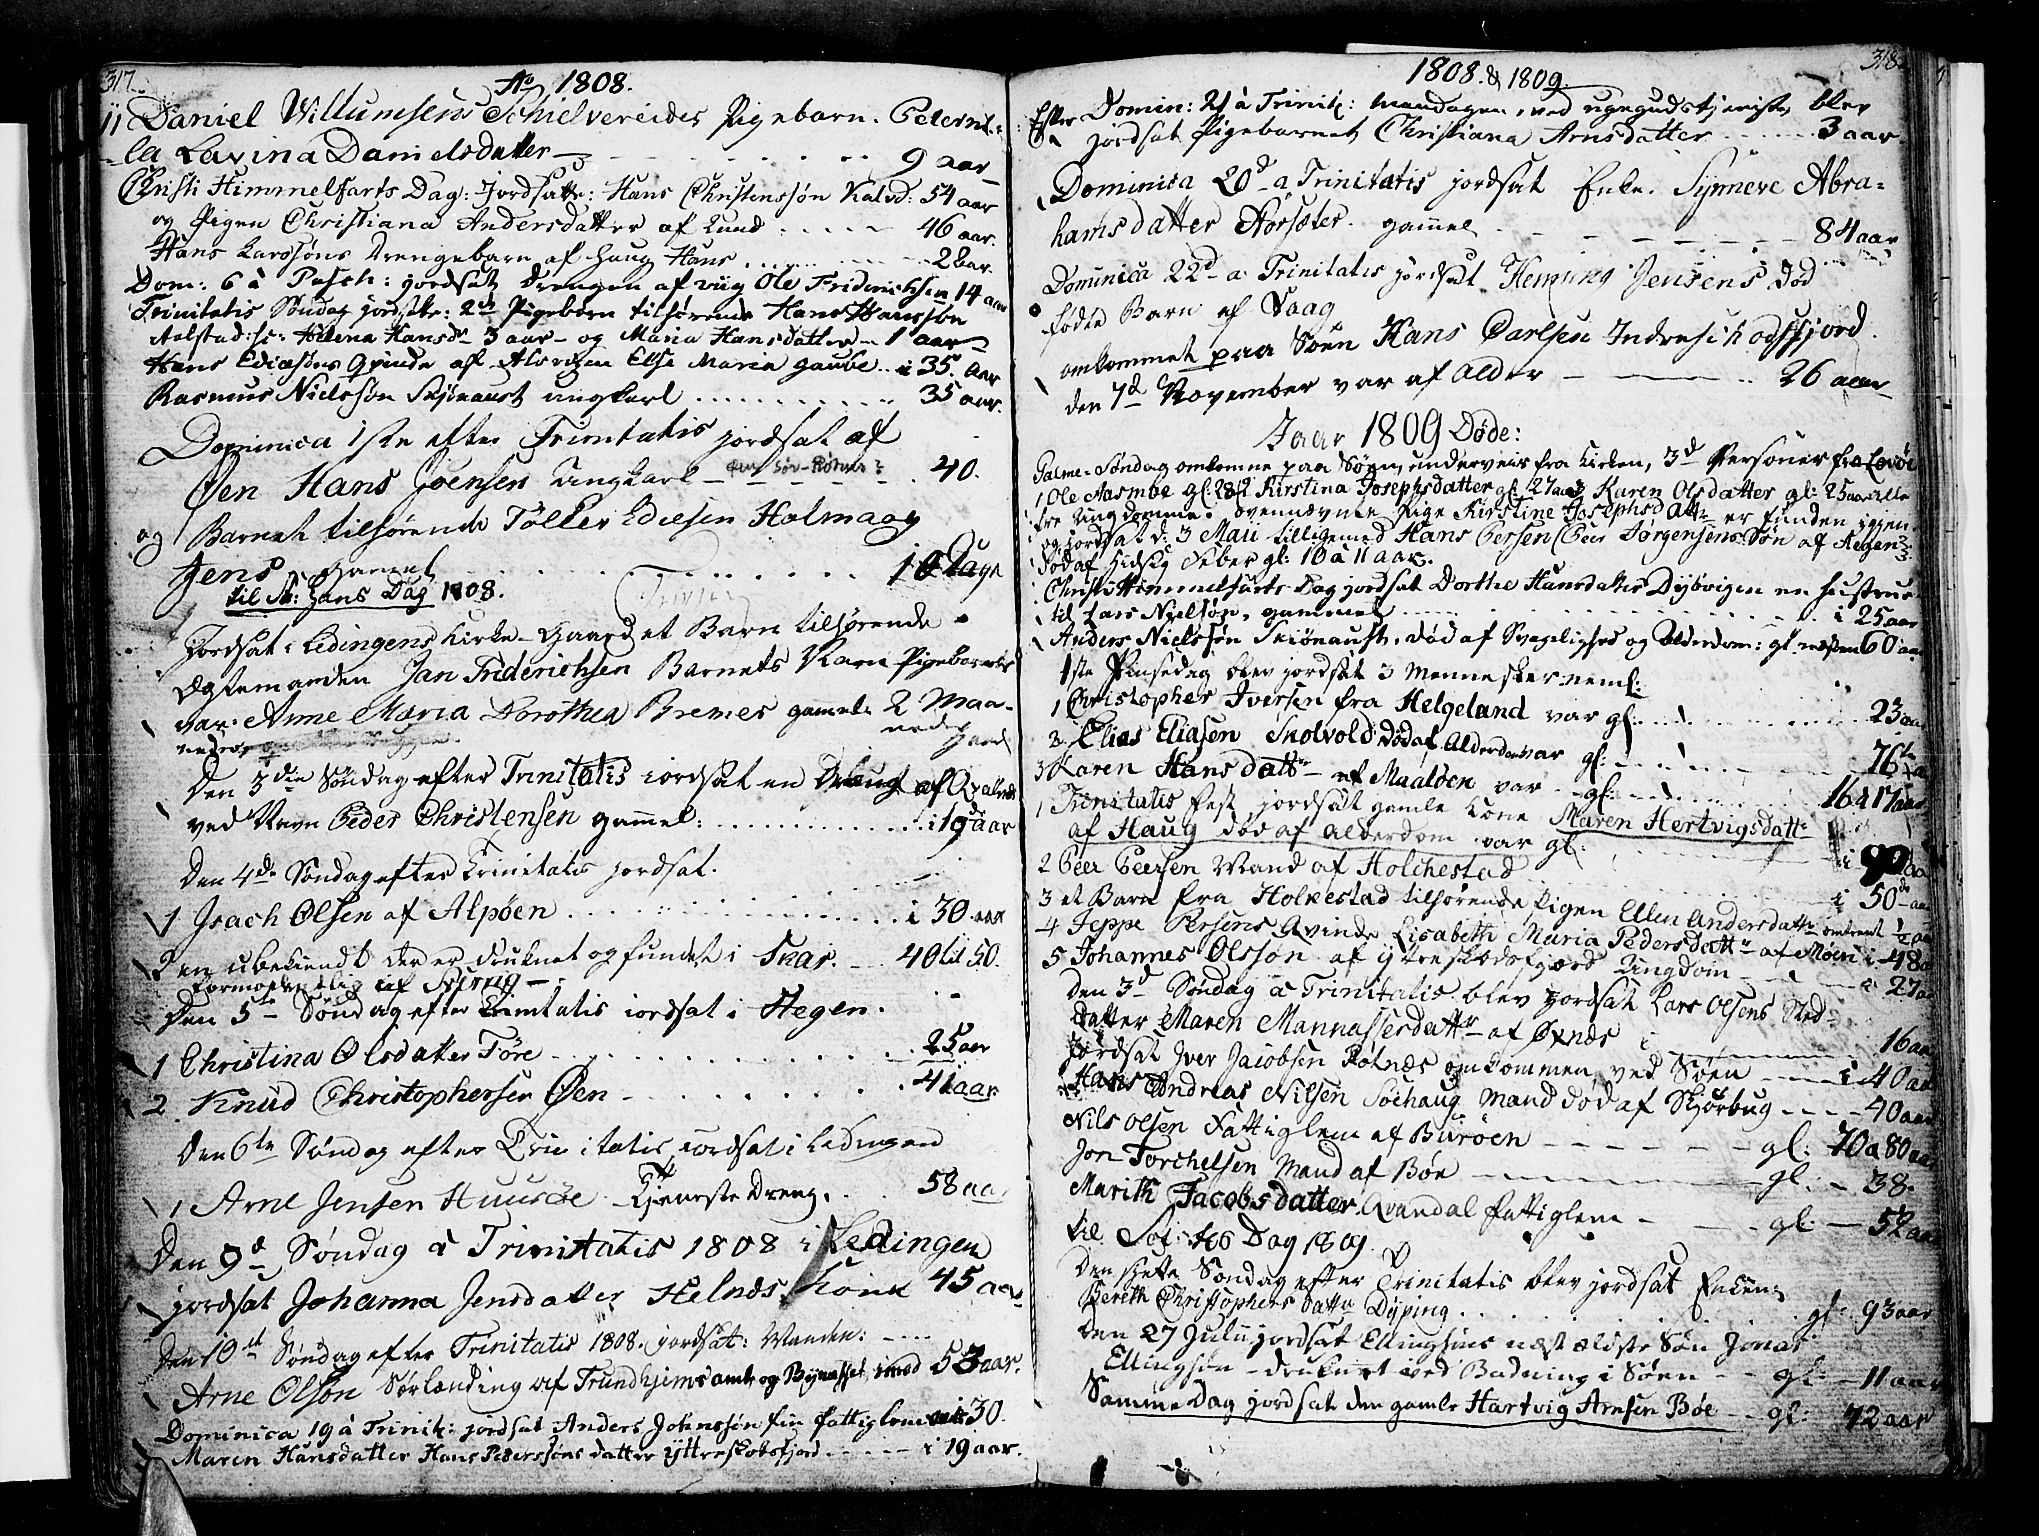 317
Ao 1808.
11 Daniel Willumsens Schielvereides Pigebarn. Peternel-
la Lavina Danielsdatter 9 aar
Christi Himmelfarts Dag: Jordsatte: Hans Christenssøn Kalvd: 54 aar
og Pigen Christiana Andersdatter af Lund ..... 46 aar.
Hans Larssøns Drengebarn af Haug Hans ..... 2 aar.
Dom: 6 à Pasch: jordsat Drengen af Viig Ole Friderichsen 14 aar
Trinitatis Søndag jordsatte: 2de Pigebørn tilhørende Hans Hanssøn
Aalstad: sc: Helena Hansd. 3 aar - og Maria Hansdatter 1 aar
Hans Eliæsøns Qvinde af Else Maria i 35. aar
Rasmus Nielssøn Skjønaust ungkarl .......... 35 aar.
Dominica 1ste efter Trinitatis jordsat af
Øen Hans Joensen Ungkarl 40.
og Barnet tilhørende Toller Holmaag
Jens gamel ........ 10 Dage
til St: Hans Dag 1808.
Jordsat i Lødingens Kirke-Gaard et Barn tilhørende
Ægtemanden Jan Friderichsen Barnets Navn Pigebarnets
var: Anne Maria Dorothea Bremes gamel: 2 Maa-
neder
Den 3die Søndag efter Trinitatis jordsat en Dreng af
ved Navn Peder Christensen gammel: .......... i 19 aar
Den 4de Søndag efter Trinitatis jordsat.
1 Isach Olsen af Alpøen .......... i 30 aar
2 en ubekiendt der er druknet og fundet i Skar. - 40 til 50.
formodentlig af
Den 5te Søndag efter Trinitatis jordsat i Hegen.
1 Christina Olsdatter Tøre - ........ 25 aar
2 Knud Christophersen Øen - ........ 41 aar.
Den 6te Søndag efter Trinitatis jordsat i Lødingen
1 Arne Jensen Huusøe Tjeneste Dreng. .. 58 aar
Den 9d Søndag à Trinitatis 1808 i Lødingen
jordsat Johanna Jensdatter Helnæs Kone 45 aar
Den 10de Søndag efter Trinitatis 1808. jordsat: Manden:
Arne Olsøn Sørlænding af Trundhjems amt og Bynæsset 53 aar.
Dominica 19 à Trinit: jordsat Anders Johnssøn fattiglem 30.
Maren Hansdatter Hans Pederssøns datter yttreskotsfjord ..... i 19 aar.
318
1808. & 1809.
Efter Domin: 21 à Trinit: mandagen, ved ugegudstjeniste, blev
jordsat Pigebarnet Christiana Arnsdatter ..... 3 aar.
Dominica 20d a Trinitatis jordsat Enke. Synneve Abra-
hamsdatter Korsæter. gammel - - - - 84 aar
Dominica 22d a Trinitatis jordsat Heming Jensens død
fødte Barn af Vaag
omkommet paa Søen Hans Carlsen Indreskodsfjord.
den 7d November var af Alder - - - .. 26 aar
Jaar 1809 Døde:
Palme-Søndag omkomne paa Søen, underveis fra Kirken, 3d Personer fra
1 Ole Aasmoe gl: 28. 2 Kirstina Josephsdatter gl: 27 aar 3 Karen Olsdatter gl: 25 aar alle
tre Ungdomme. ovennævnte Pige Kirstine Josephsdattr er funden igjen
og jordsat d: 3 Maii tilligemed Hans Persen (Peer Jørgensens Søn af Hegen
død af Hidsig Feber gl: 10 à 11 aar.
Christi Himmelfarts-Dag jordsat Dorthe Hansdatter Dybvigen en Hustrue
til Lars Nielsøn, gammel ........ i 25 aar
Anders Nielssøn Skiønaust, død af Svagelighed og Alderdom: gl. næsten 60 aar
1ste Pinsedag blev jordsat 3 Mennesker neml:
1 Christopher Iversen fra Helgeland var gl: ........ 23 aar
2 Elias Eliasen Skolvold død af Alderdom var gl: ...... 76
3 Karen Hansdattr af Maaløen var gl: ...... 16 à 17 aar
1 Trinitatis Fest jordsat gamle Kone Maren Hertvigsdattr
af Haug død af alderdom var gl: 90 aar
2 Peer Peersen Mand af Holchestad i 50 aar
3 et Barn fra Holkestad tilhørende Pigen Ellen Andersdattr omtrent 1/2 aar
4 Jeppe Persens Qvinde Lisabeth Maria Pedersdattr af Møen i 48 aar
5 Johannes Olssøn af ytreskodsfjord Ungdom - i 27 aar
Den 3d Søndag à Trinitatis blev jordsat Lars Olsens Sted-
datter Maren Mannassesdattr af Øxnæs i 16 aar
Jordsat Iver Jacobsen Rotnæs omkommen ved Søen i 40 aar
Hans Andreas Nilsen Søehaug Mand død af Skjørbug .... 40 aar
Nils Olsen Fattiglem af Burøen - - - gl: 70 a 80 aar
Jon Torchelsen Mand af Bøe - - - gl: 38.
Marith Jacobsdatter Qvandal Fattiglem - - gl: 52 aar
til St: Dag 1809.
Den siette Søndag efter Trinitatis blev jordsat Enken
Bereth Christophersdattr Dyping. ........ gl: 93 aar
Den 27 Julii jordsat Ellingsøns næst ældste Søn Jonas
Ellingsøn - druknet ved Badning i Søen - - gl: 11 aar
Samme Dag jordsat den gamle Hartvig Arnsen Bøe - gl: 72 aar